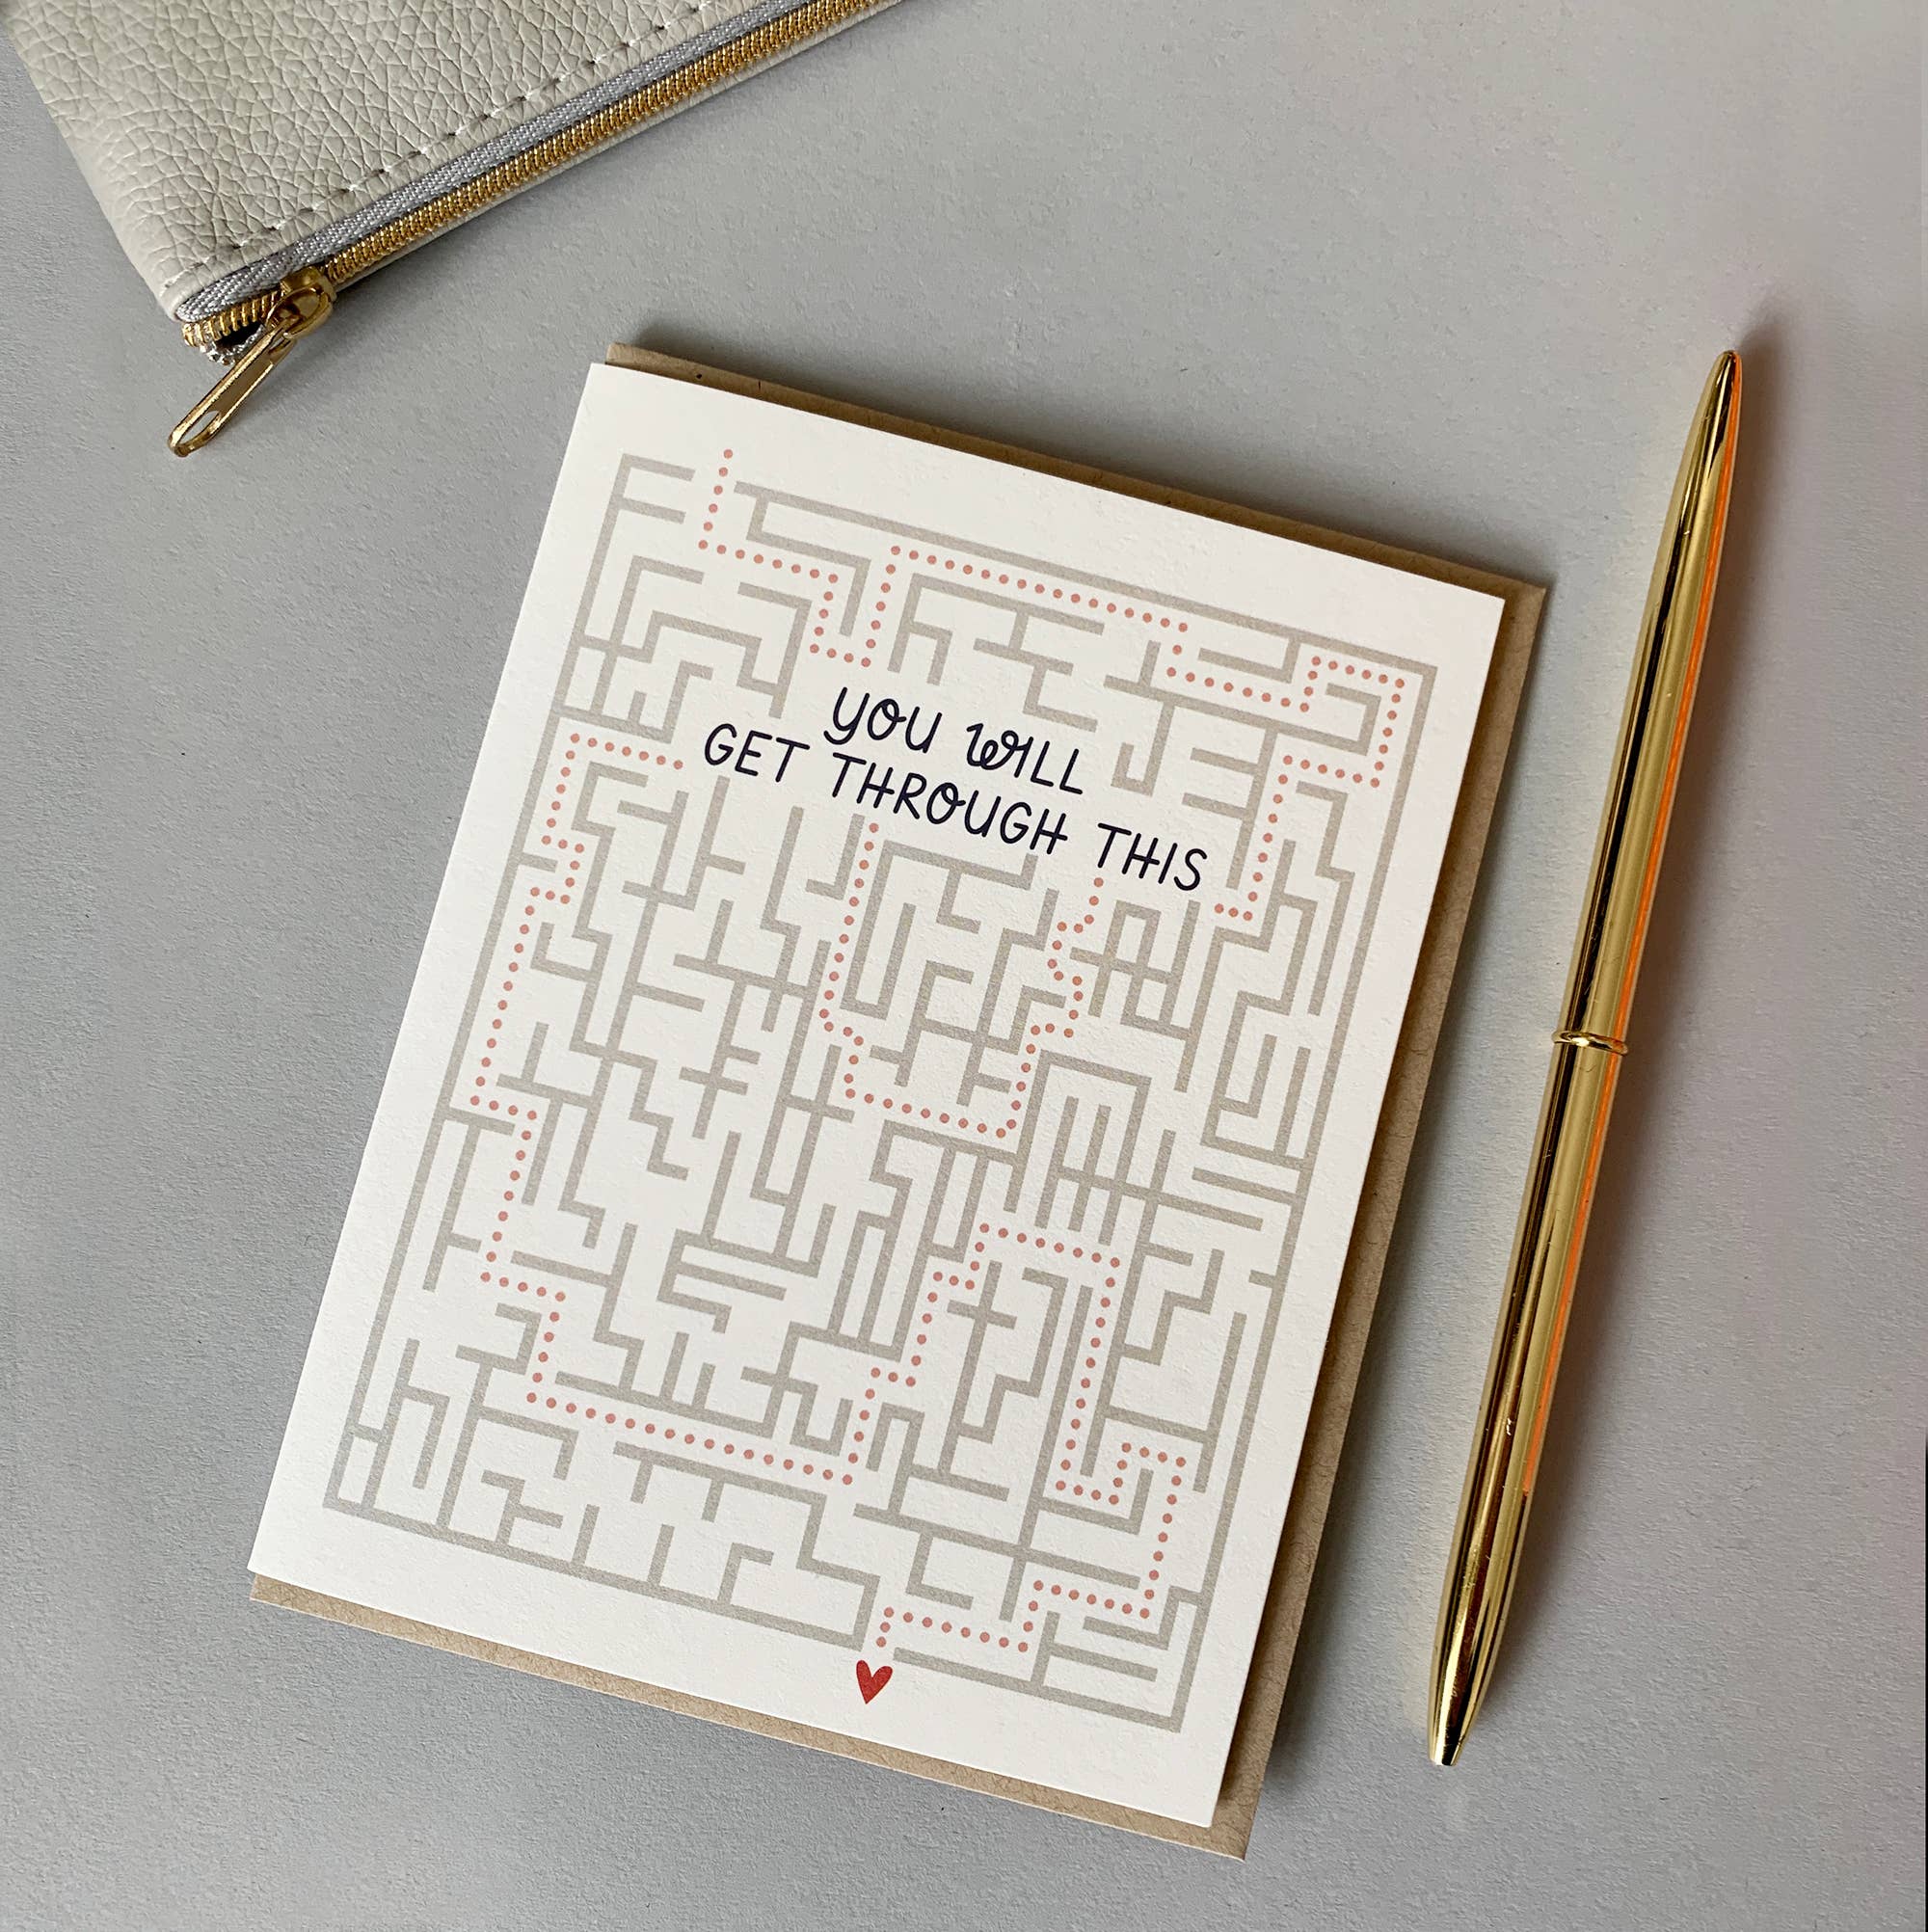 YOU WILL
GET THROUGH THIS